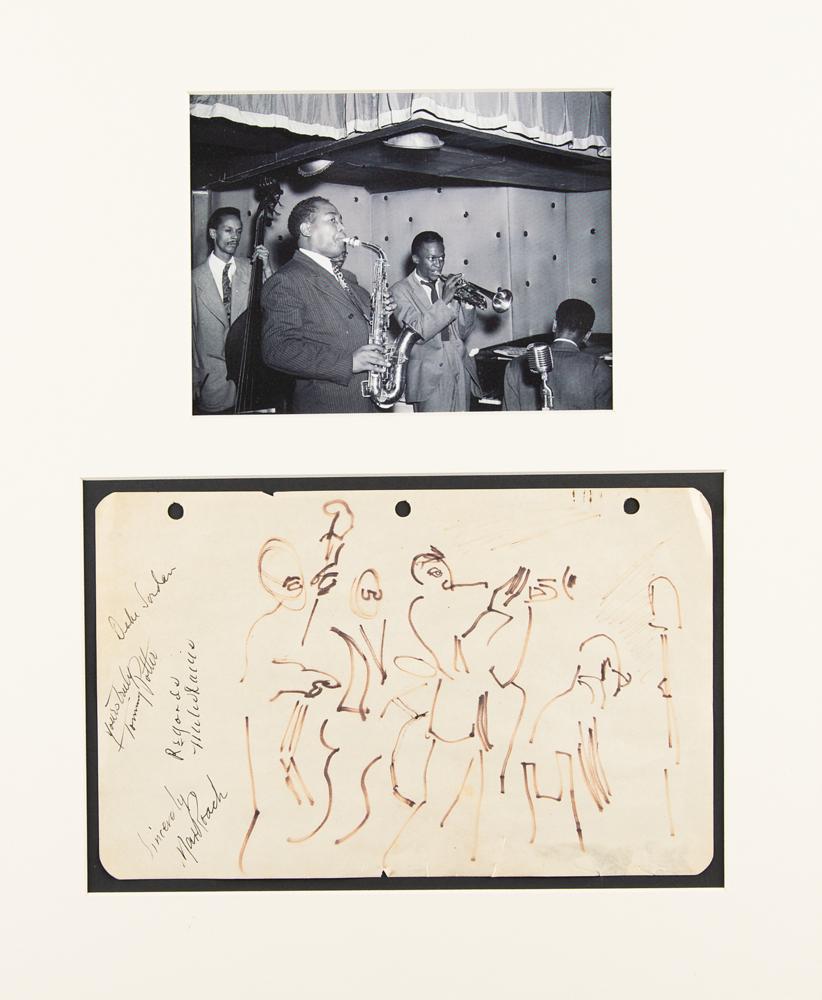 Duke Jordan
Yours truly
Tommy Potter
Regards
Miles Davis
Sincerely
Max Roach